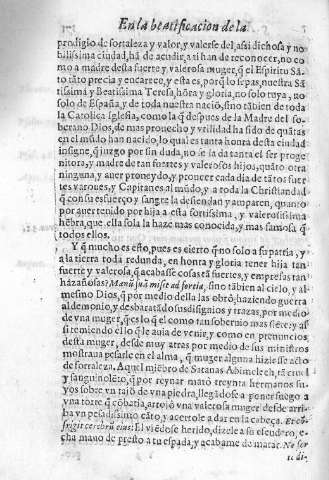 En la beatificacion de la
prodigio de fortaleza y valor, y valerse del, assi dichosa y no
bilissima ciudad, hã de acudir, a ti han de reconocer, no co
mo a madre desta fuerte y valerosa muger, q̃ el Espiritu Sã-
to tãto precia y encarece, y esta es, porq̃ lo sepas, nuestra Sã
tissima y Beatissima Teresa, hõra y gloria, no solo tuya, no
solo de España, y de toda nuestra nació, sino tãbien de toda
la Catolica Iglesia, como la q̃ despues de la Madre del so-
berano Dios, de mas prouecho y vtilidad ha sido de quãtas
en el mũdo han nacido, lo qual es tanta honra desta ciudad
insigne, q̃ juzgo por sin duda, no se la da tanta el ser proge
nitora, y madre de tan fuertes y valerosos hijos, quãto otra
ninguna, y auer proueydo, y proueer cada dia de tãtos fuer
tes varones, y Capitanes al mũdo, y a toda la Christiandad
q̃ con su esfuerço y sangre la defiendan y amparen, quanto
por auer tenido por hija a esta fortissima, y valerosissima
hẽbra, que ella sola la haze mas conocida, y mas famosa q̃
todos ellos.
Y q̃ mucho es esto, pues es cierto q̃ no solo a su patria, y
a la tierra toda redunda, en honra y gloria tener hija tan
fuerte y valerosa, q̃ acabasse cosas tã fuertes, y empresas tan
hazañosas? Manũ suã misit ad fortia, sino tãbien al cielo, y al
mesmo Dios, q̃ por medio della las obrò, haziendo guerra
al demonio, y desbaratãdo sus disignios y trazas, por medio
de vna muger, q̃ es lo q̃ el como tan soberuio mas siete: y as
si temiendo el lo q̃ le auia de venir, y como en pronuncios
desta muger, desde muy atras por medio de sus ministros
mostraua pesarle en el alma, q̃ muger alguna hiziesse acto
de fortaleza. Aquel miẽbro de Satanas Abimelech, tã cruel
y sanguinolẽto, q̃ por reynar matò treynta hermanos su-
yos sobre vn tajo de vna piedra, llegãdose a poner fuego a
vna torre q̃ cõbatia, arrojò vna valerosa muger desde arri-
ba vn pesadissimo cãto, y acertole a dar en la cabeça. Et cõ
frigit cerebrũ eius: El viẽdose herido, dizele a su escudero, e-
cha mano de presto a tu espada, y acabame de matar. Ne for